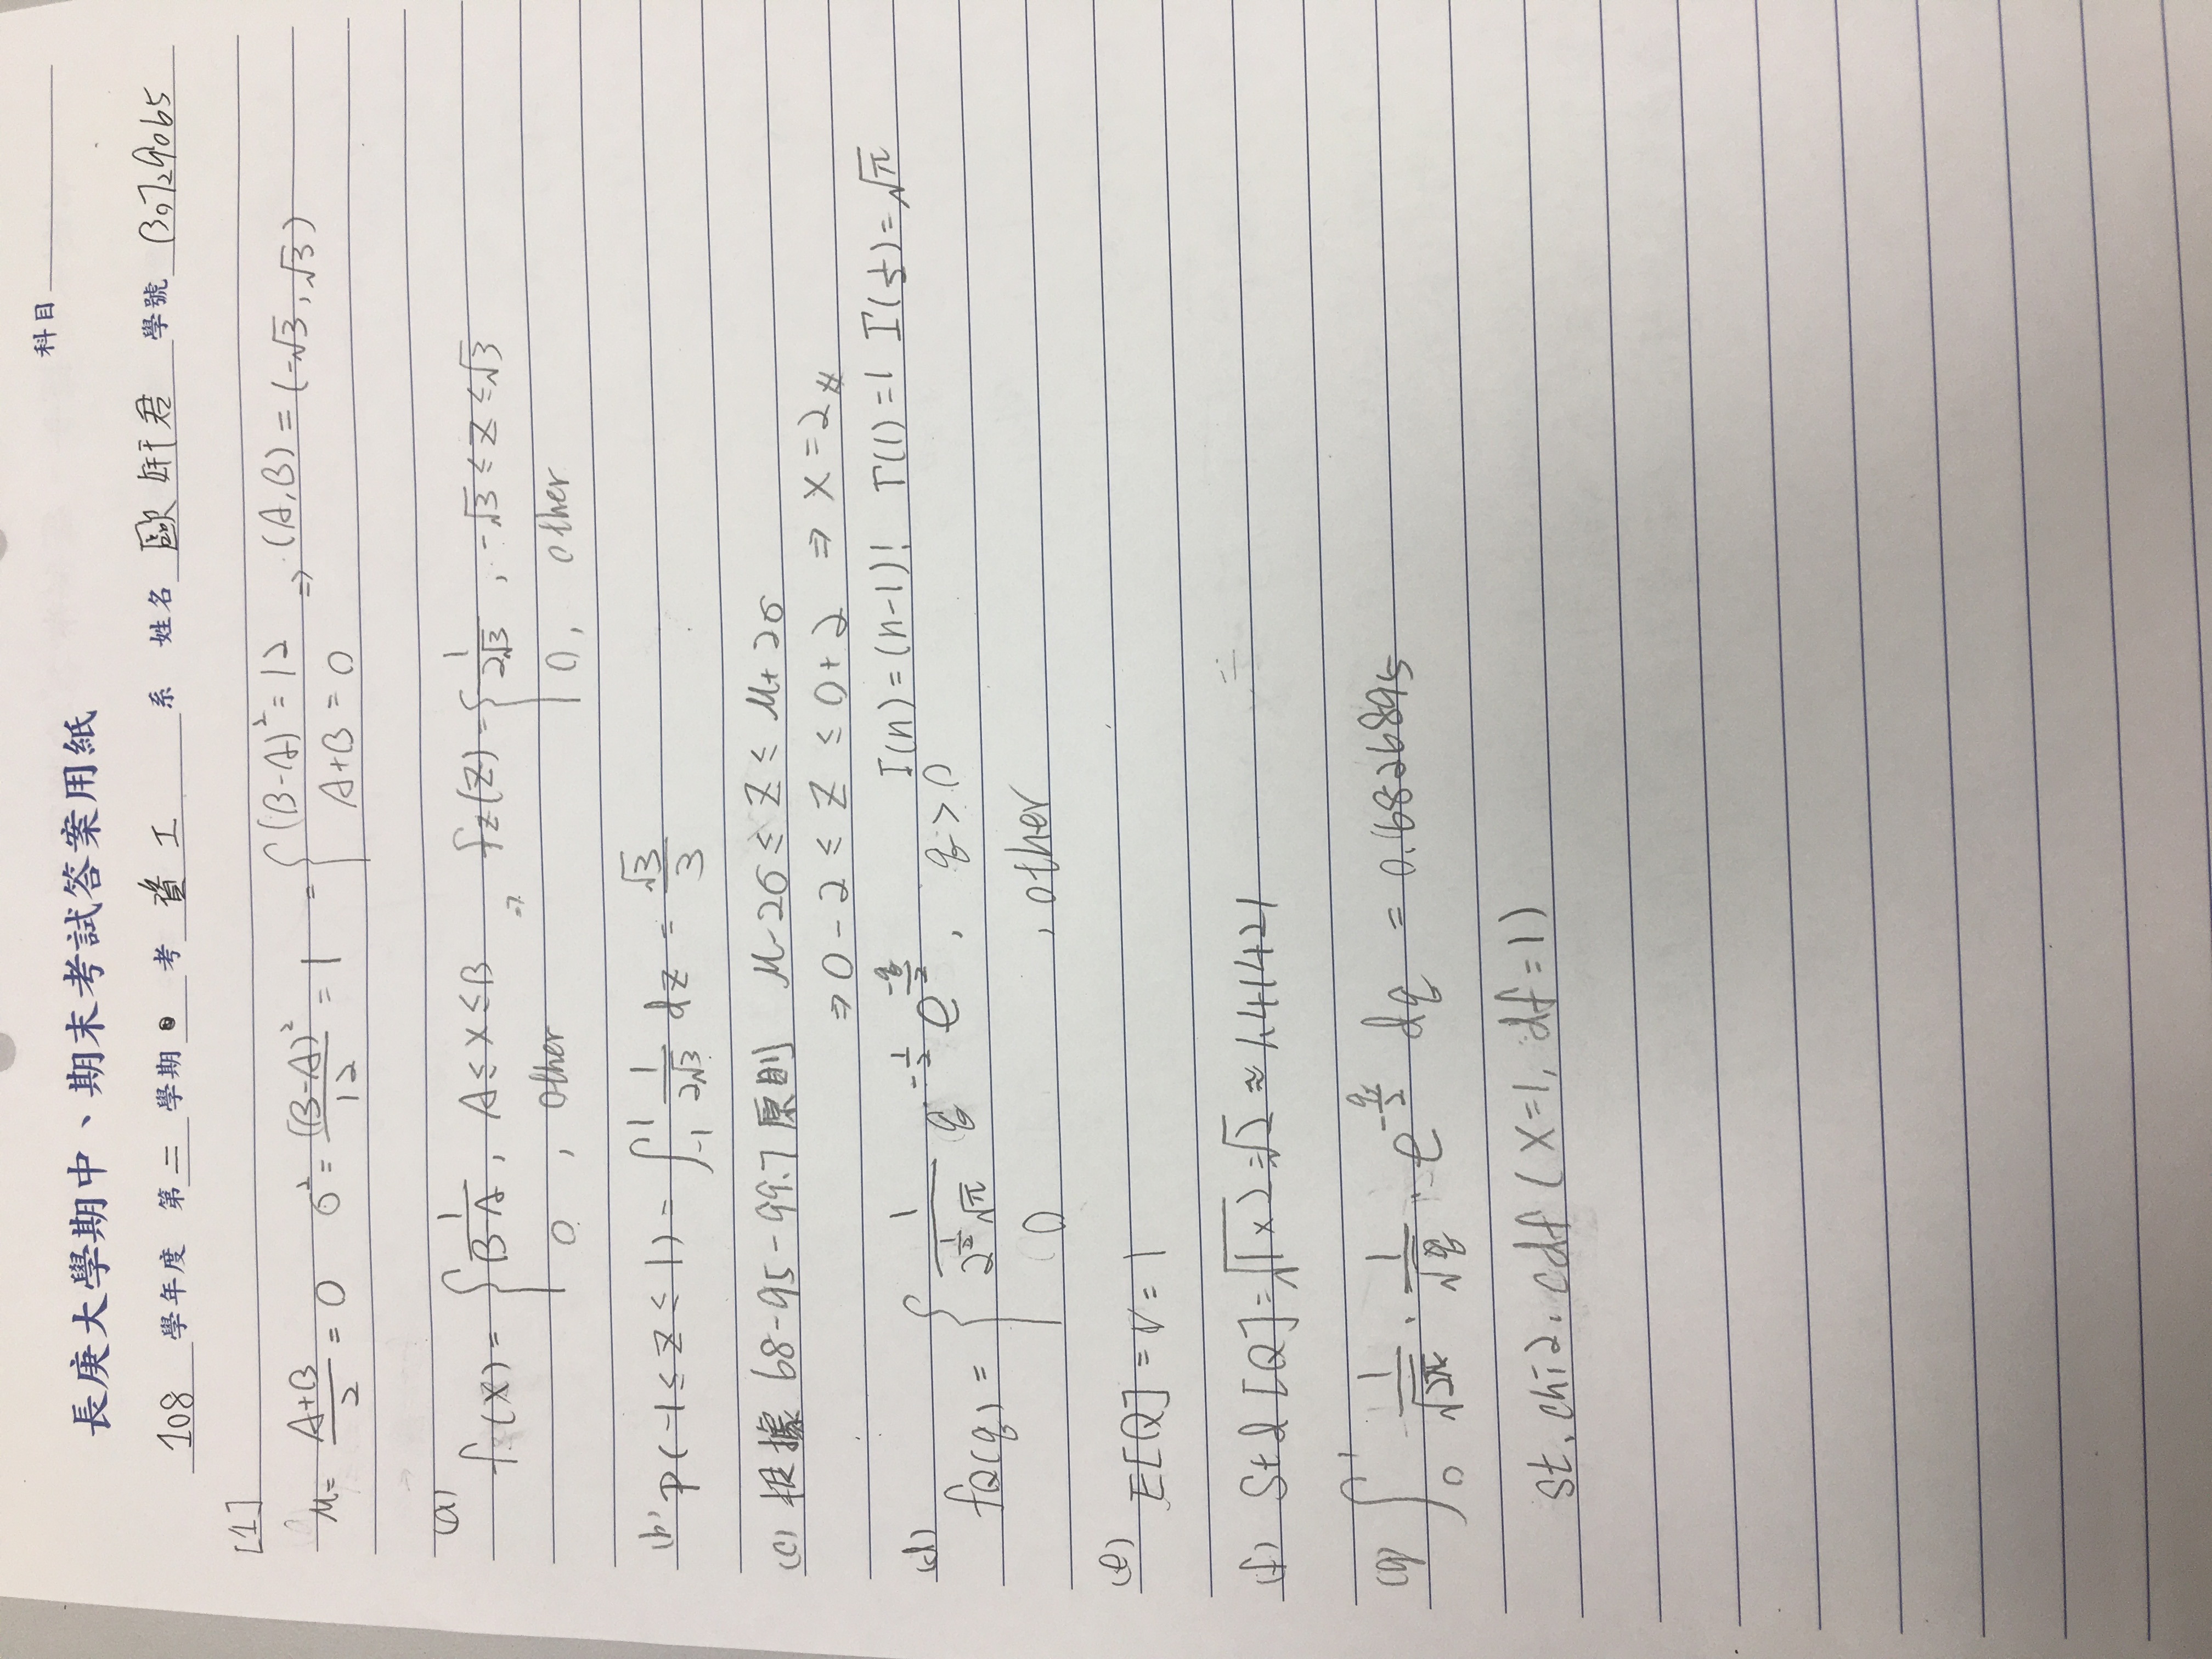 科目
長庚大學期中、期末考試答案用紙
108 學年度 第 二 學期 考 資工 系 姓名 歐妍君 學號 B0729065
[1]
μ= (A+B)/2 = 0 σ²= (B-A)²/12 = 1 = { (B-A)² = 12 ⇒ (A,B) = (-√3, √3)
A+B = 0
(a) f(x) = { 1/(B-A), A≤x≤B ⇒ fz(z) = { 1/(2√3), -√3≤z≤√3
0, other 0, other
(b) P(-1≤z≤1) = ∫_{-1}^{1} 1/(2√3) dz = √3/3
(c) 根據 68-95-99.7 原則 μ-2σ ≤ Z ≤ μ+2σ
⇒ 0-2 ≤ Z ≤ 0+2 ⇒ x=2 #
Γ(n)=(n-1)! Γ(1)=1 Γ(1/2)=√π
(d) fQ(q) = { 1/(2^{1/2}√π) q^{-1/2} e^{-q/2}, q>0
0, other
(e) E[Q] = v = 1
(f) Std[Q]=√(1×2)=√2≈1.41421
(g) ∫_0^1 1/√(2π) · 1/√q · e^{-q/2} dq = 0.6826895
st.chi2.cdf(x=1, df=1)